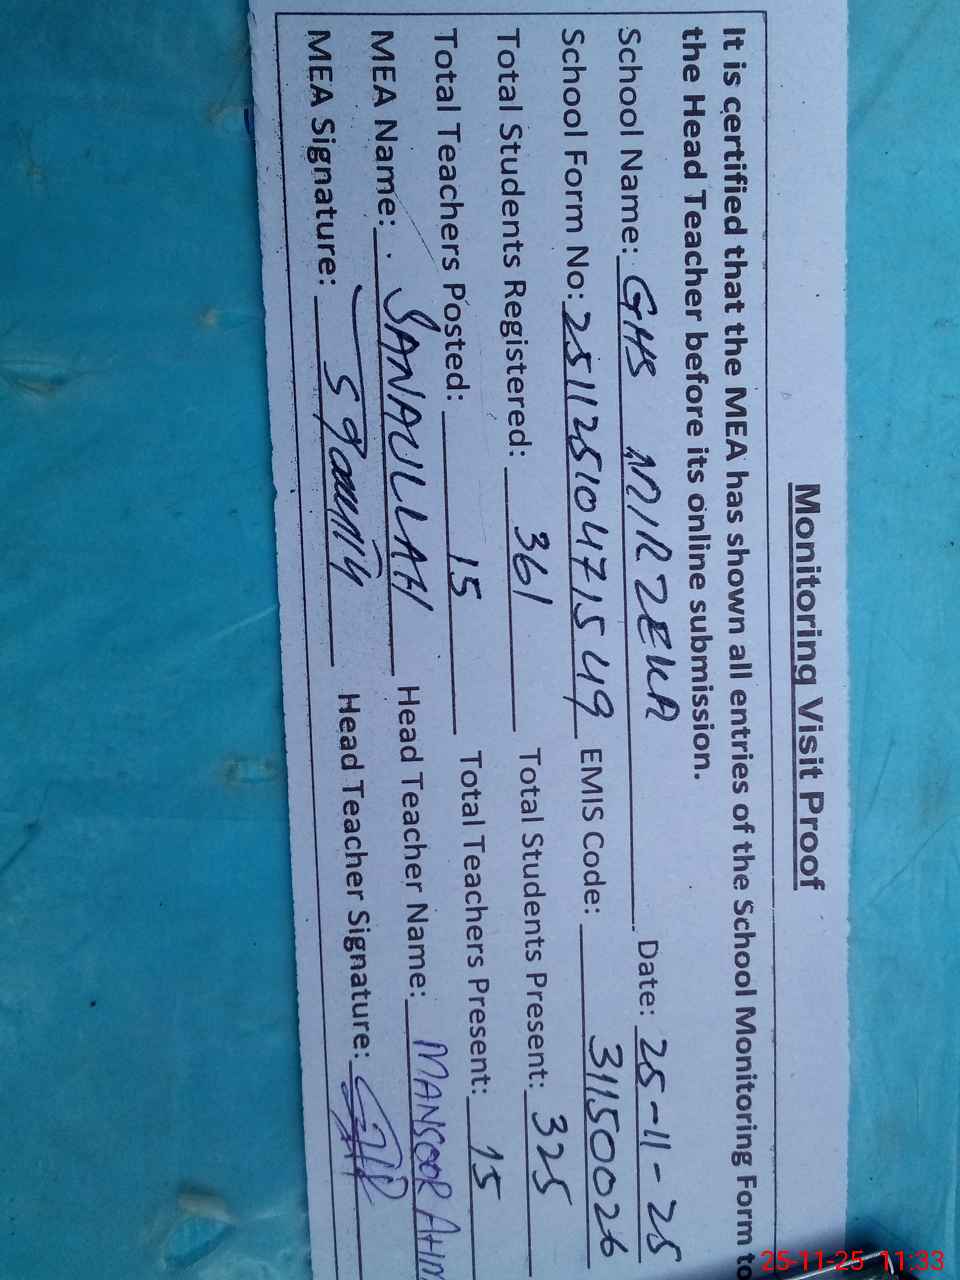 Monitoring Visit Proof
It is certified that the MEA has shown all entries of the School Monitoring Form to
the Head Teacher before its online submission.
School Name: GHS MIRZEKA Date: 25-11-25
School Form No: 25112510471549 EMIS Code: 31150026
Total Students Registered: 361 Total Students Present: 325
Total Teachers Posted: 15 Total Teachers Present: 15
MEA Name: SANAULLAH Head Teacher Name: MANSOOR AHM
MEA Signature: Head Teacher Signature:
25-11-25 11:33